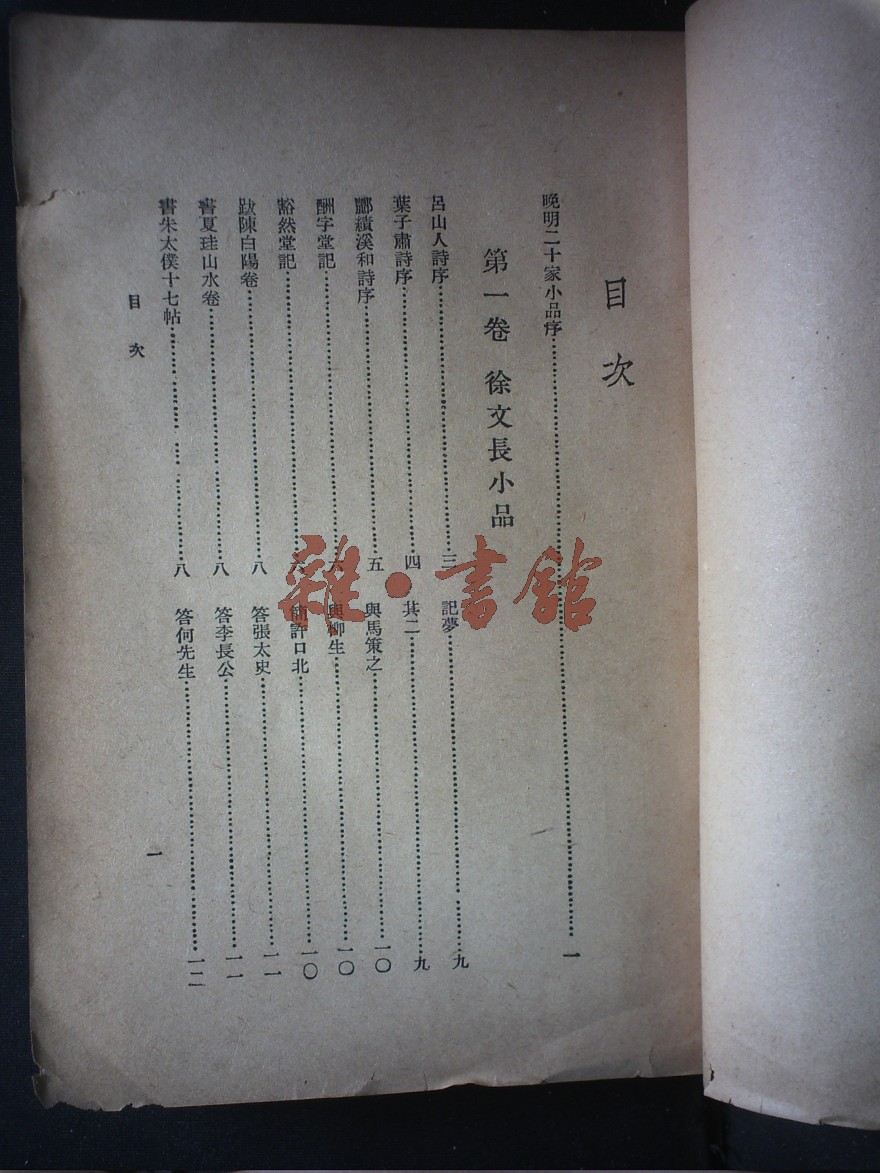 目次
晚明二十家小品序 一
第一卷 徐文長小品
呂山人詩序 三
葉子肅詩序 四
酈績溪和詩序 五
酬字堂記 六
豁然堂記 六
跋陳白陽卷 八
書夏珪山水卷 八
書朱太僕十七帖 八
記夢 九
其二 九
與馬策之 一〇
與柳生 一〇
許口北 一〇
答張太史 一一
答李長公 一一
答何先生 一二
目次
一
雜·書館